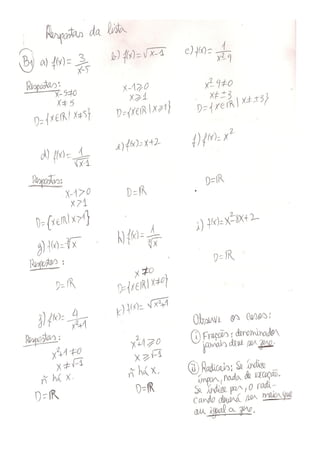 Respostas da lista
B1) a) f(x) = 3/x-5   b) f(x) = √x-1   c) f(x) = 1/x²-9
Respostas:
x-5≠0   x-1≥0   x²-9≠0
x≠5   x≥1   x≠±3
D={x∈ℝ | x≠5}   D={x∈ℝ | x≥1}   D={x∈ℝ | x≠±3}
d) f(x) = 1/√x-1   e) f(x) = x+2   f) f(x) = x²
Respostas:
x-1>0   D=ℝ   D=ℝ
x>1
D={x∈ℝ | x>1}
g) f(x) = ∛x   h) f(x) = 1/∛x   i) f(x) = x²-8x+2
Respostas:
D=ℝ   x≠0   D=ℝ
D={x∈ℝ | x≠0}
j) f(x) = 4/x²+1   k) f(x) = √x²+1
Respostas:
x²+1≠0   x²+1≥0
x≠√-1   x≥√-1
ñ há x.   ñ há x.
D=ℝ   D=ℝ
Observe os casos:
i) Frações: denominador
jamais deve ser zero.
ii) Radicais: Se índice
ímpar, nada de exceção.
Se índice par, o radi-
cando deverá ser maior que
ou igual a zero.